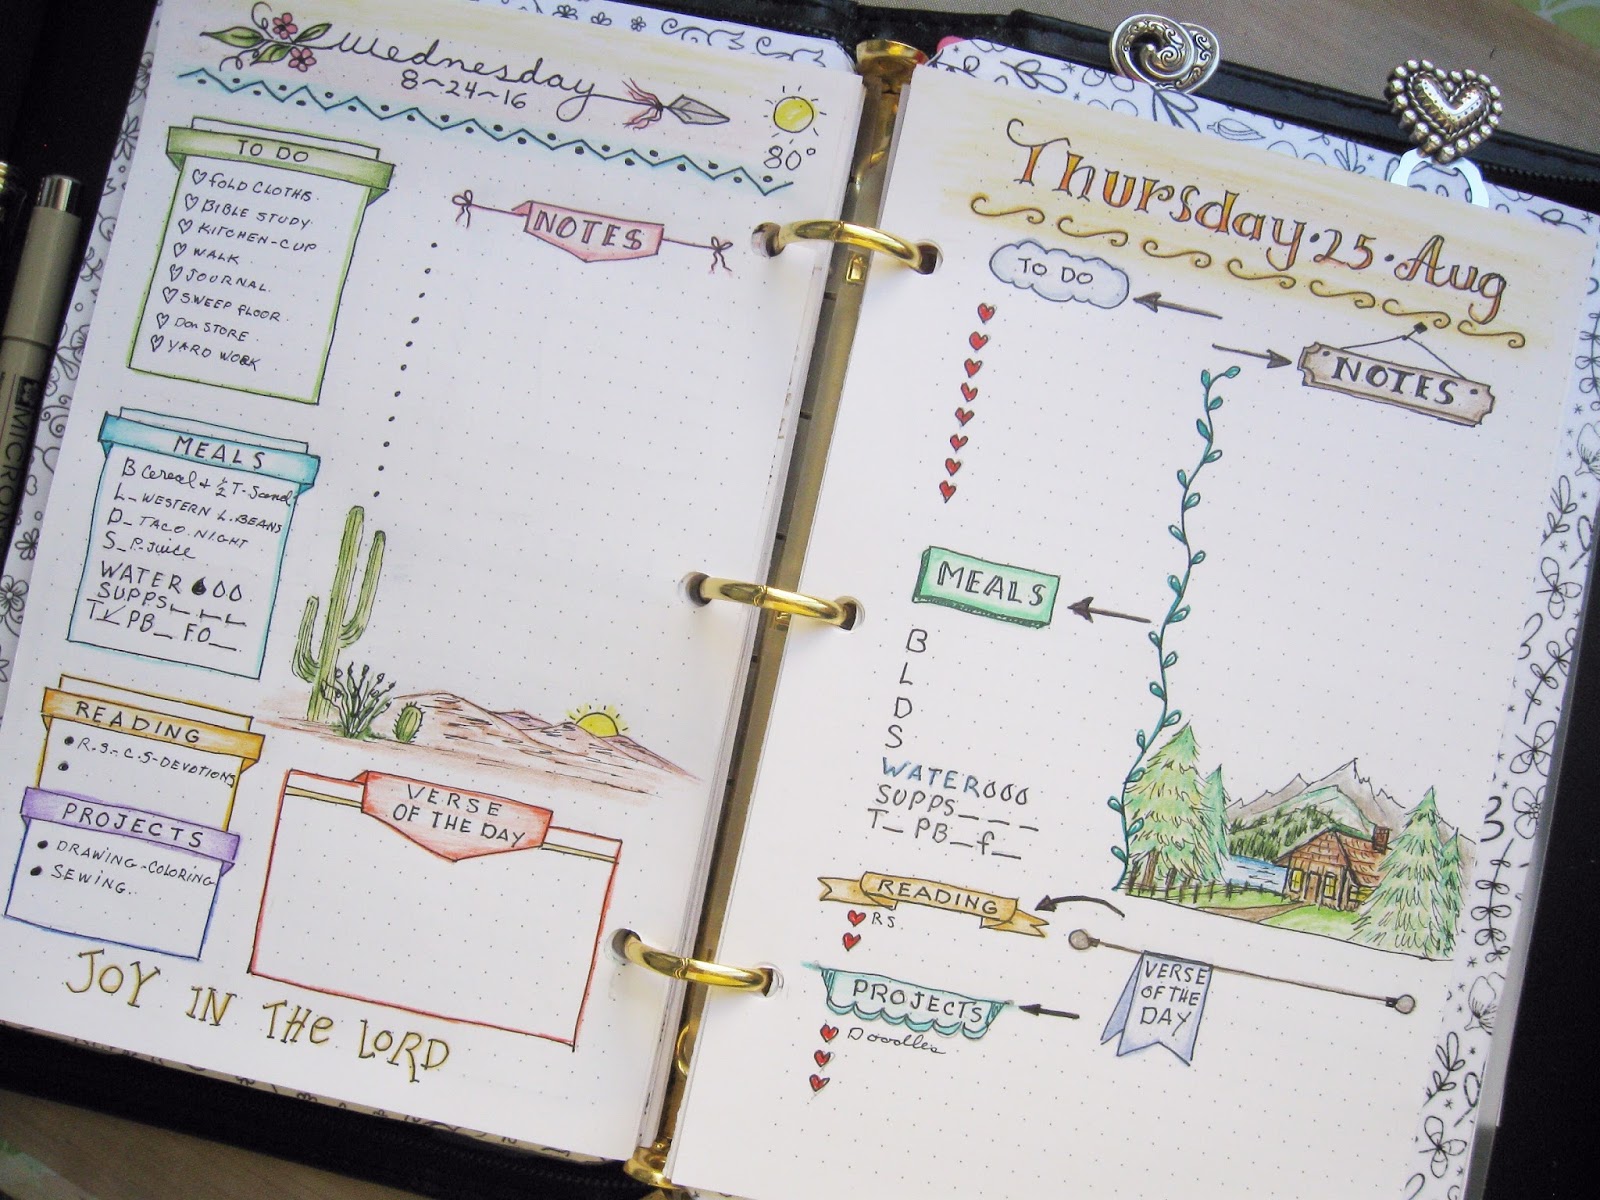 Wednesday
8~24~16
80°
TO DO
FOLD CLOTHS
BIBLE STUDY
KITCHEN-CUP
WALK
JOURNAL
SWEEP FLOOR
STORE
YARD WORK
NOTES
MEALS
B Cereal + ½ T-Sand
L_WESTERN L.BEANS
D_ TACO NIGHT
S_P.Juice
WATER
SUPPS
T✓ PB_ FO_
READING
R.S.-C.S-DEVOTIONS
PROJECTS
DRAWING-COLORING
SEWING.
VERSE
OF THE DAY
JOY IN THE LORD
Thursday·25·Aug
TO DO
NOTES
MEALS
B
L
D
S
WATER
SUPPS_ _ _
T_ PB_f_
READING
RS
PROJECTS
Doodles
VERSE
OF THE
DAY
MICRON
3
3